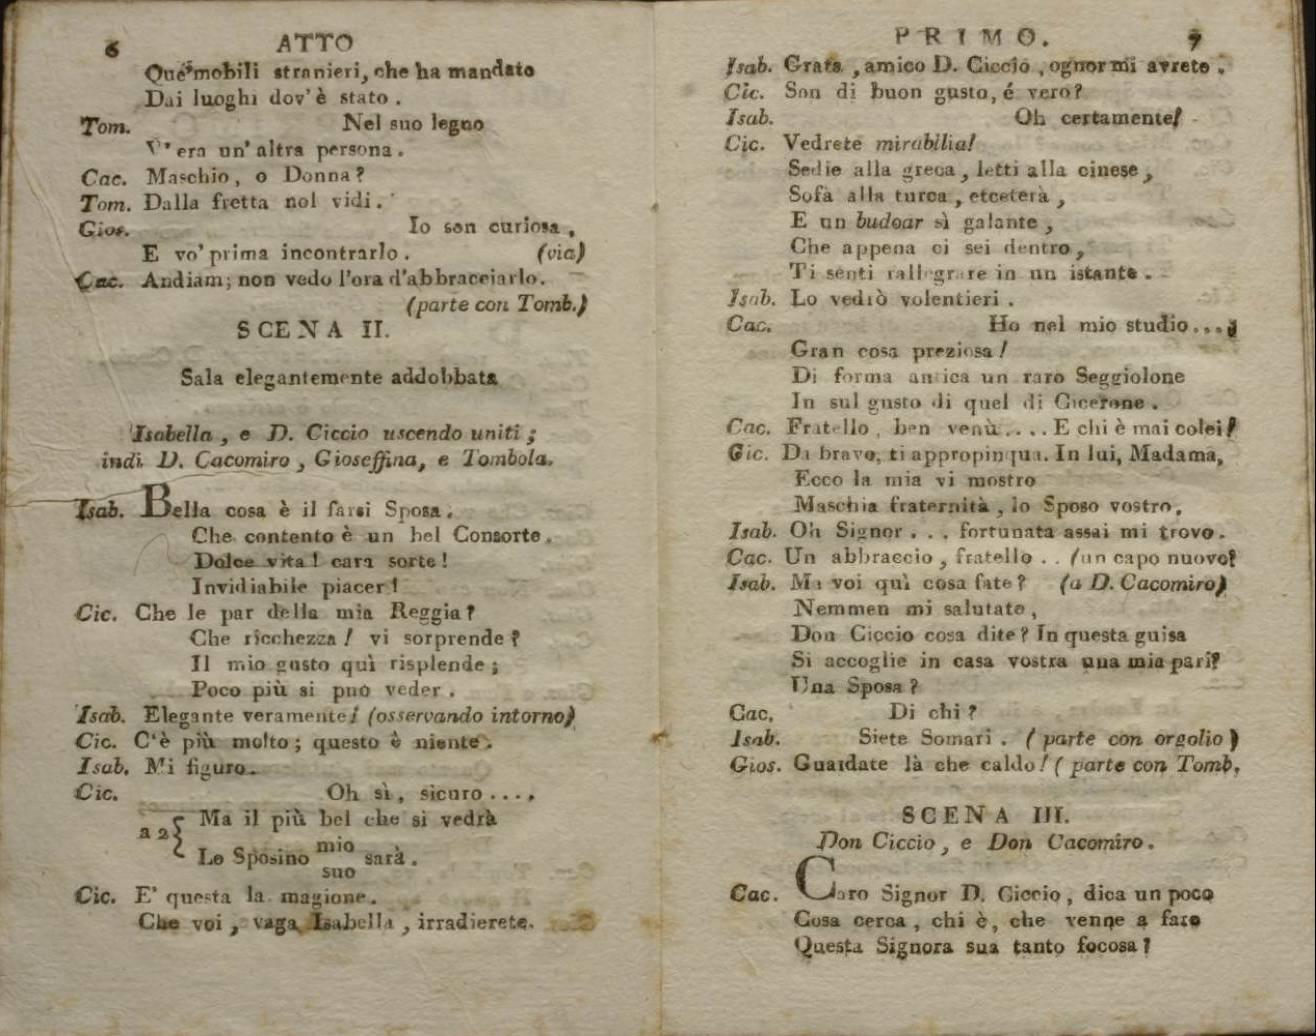 6 ATTO
Que' mobili stranieri, che ha mandato
Dai luoghi dov'è stato.
Tom. Nel suo legno
V'era un'altra persona.
Cac. Maschio, o Donna?
Tom. Dalla fretta nol vidi.
Gios. Io son curiosa,
E vo' prima incontrarlo. (via)
Cac. Andiam; non vedo l'ora d'abbracciarlo.
(parte con Tomb.)
SCENA II.
Sala elegantemente addobbata
Isabella, e D. Ciccio uscendo uniti;
indi D. Cacomiro, Gioseffina, e Tombola.
Isab. Bella cosa è il farsi Sposa.
Che contento è un bel Consorte.
Dolce vita! cara sorte!
Invidiabile piacer!
Cic. Che le par della mia Reggia?
Che ricchezza! vi sorprende?
Il mio gusto quì risplende;
Poco più si può veder.
Isab. Elegante veramente! (osservando intorno)
Cic. C'è più molto; questo è niente.
Isab. Mi figuro.
Cic. Oh sì, sicuro....
a 2 { Ma il più bel che si vedrà
Lo Sposino mio sarà.
suo
Cic. E' questa la magione.
Che voi, vaga Isabella, irradierete.
PRIMO. 7
Isab. Grata, amico D. Ciccio, ognor mi avrete.
Cic. Son di buon gusto, é vero?
Isab. Oh certamente!
Cic. Vedrete mirabilia!
Sedie alla greca, letti alla cinese,
Sofà alla turca, etceterà,
E un budoar sì galante,
Che appena ci sei dentro,
Ti senti rallegrare in un istante.
Isab. Lo vedrò volentieri.
Cac. Ho nel mio studio...;
Gran cosa preziosa!
Di forma antica un raro Seggiolone
In sul gusto di quel di Cicerone.
Cac. Fratello, ben venù.... E chi è mai colei!
Cic. Da bravo, ti appropinqua. In lui, Madama,
Ecco la mia vi mostro
Maschia fraternità, lo Sposo vostro.
Isab. Oh Signor... fortunata assai mi trovo.
Cac. Un abbraccio, fratello.. (un capo nuovo!
Isab. Ma voi quì cosa fate? (a D. Cacomiro)
Nemmen mi salutate,
Don Ciccio cosa dite? In questa guisa
Si accoglie in casa vostra una mia pari?
Una Sposa?
Cac. Di chi?
Isab. Siete Somari. (parte con orgolio)
Gios. Guardate là che caldo! (parte con Tomb.
SCENA III.
Don Ciccio, e Don Cacomiro.
Cac. Caro Signor D. Ciccio, dica un poco
Cosa cerca, chi è, che venne a fare
Questa Signora sua tanto focosa?